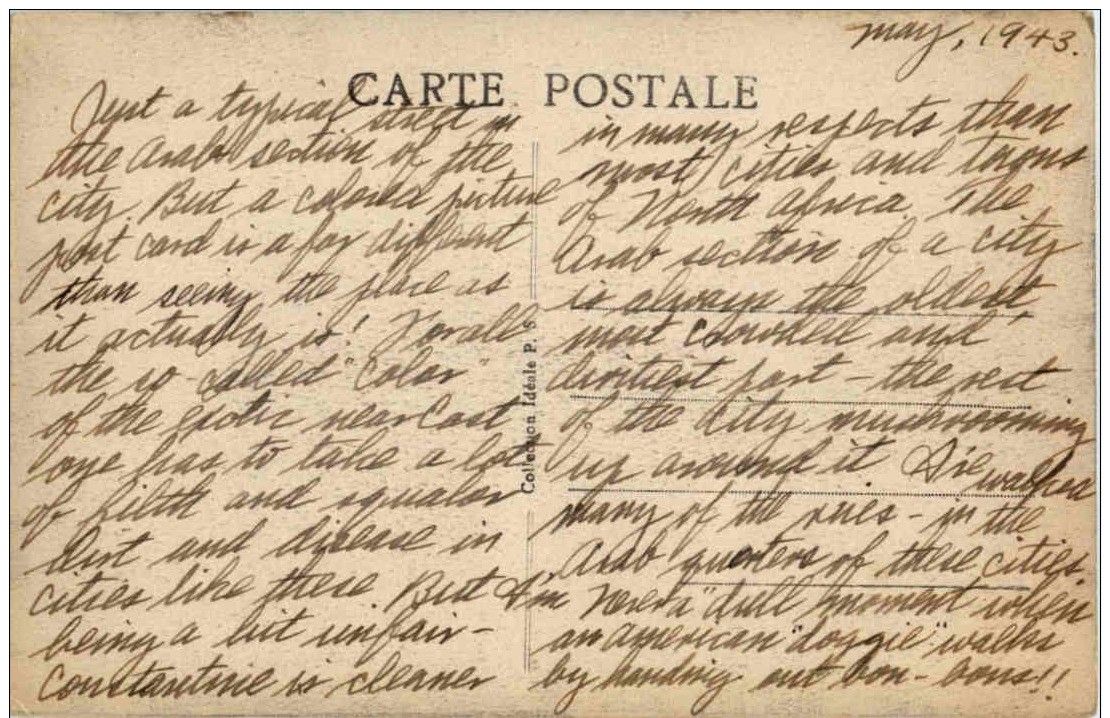 May, 1943.
CARTE POSTALE
Just a typical street in
the Arab section of the
city. But a colored picture
post card is a far different
than seeing the place as
it actually is! For all
the so-called "color"
of the exotic near East
one has to take a lot
of filth and squalor
dirt and disease in
cities like these. But I'm
being a bit unfair -
Constantine is cleaner
Collection Idéale P. S
in many respects than
most cities and towns
of North Africa. The
Arab section of a city
is always the oldest,
most crowded and
dirtiest part - the rest
of the city mushrooming
up around it. I've walked
many of the rues - in the
Arab quarters of these cities.
Never a dull moment when
an American "doggie" walks
by handing out bon-bons!!